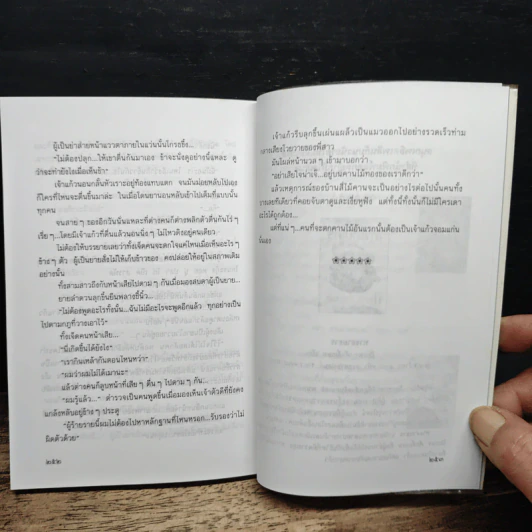 ผู้เป็นย่าส่ายหน้าแววตาภายในแว่นนั้นโกรธขึ้ง...
"ไม่ต้องปลุก...ให้เขาตื่นกันมาเอง ข้าจะนั่งดูอย่างนี้แหละ ดู
ว่าจะทำยังไงเมื่อเห็นข้า"
เจ้าแก้วนอนกลั้นหัวเราะอยู่ท้องแทบแตก จนมันผ่อยหลับไปเอง
กี่ใครที่ไหนจะตื่นขึ้นมาล่ะ ในเมื่อตอนยานอนหลับเข้าไปเต็มที่แบบนั้น
ทุกคน
จนสาย ๆ ของอีกวันนั่นแหละที่ต่างคนก็ต่างพลิกตัวตื่นกันไร่ ๆ
เรื่อ ๆ...โดยมีเจ้าแก้วที่ตื่นแล้วนอนนิ่ง ๆ ไม่ไหวติงอยู่คนเดียว
ไม่ต้องให้บรรยายเลยว่าทั้งเจ็ดคนจะตกใจแค่ไหนเมื่อเห็นอะไร ๆ
ข้าง ๆ ตัว ผู้เป็นยายสั่งไม่ให้เก็บข้าวของ คงปล่อยให้อยู่ในสภาพเดิม
อย่างนั้น
ทั้งสามสาวถึงกับหน้าเสียไปตาม ๆ กันเมื่อมองสบตาผู้เป็นยาย...
ยายลำดวนลุกขึ้นยืนพลางชี้นิ้ว...
"ไม่ต้องพูดอะไรทั้งนั้น...ฉันไม่มีอะไรจะพูดอีกแล้ว ทุกอย่างเป็น
ไปตามกฎที่วางเอาไว้"
ทั้งเจ็ดคนหน้าเสีย...
"นี่เกิดขึ้นได้ยังไง"
"เรากินเหล้ากันตอนไหนหว่า"
"ผมว่าผมไม่ได้เมานะ"
แล้วต่างคนก็ตูบหน้าที่เสีย ๆ ตื่น ๆ ไปตาม ๆ กัน...
"ผมรู้แล้ว..." ตำรวจเป็นคนพูดขึ้นเมื่อมองเห็นเจ้าตัวดีที่ยังคง
แกล้งหลับอยู่ข้าง ๆ ประตู
"ผู้ร้ายรายนี้ผมไม่ต้องไปหาหลักฐานที่ไหนหรอก...รับรองว่าไม่
ผิดตัวด้วย"
๒๕๒
เจ้าแก้วรีบลุกขึ้นเผ่นแผล็วเป็นแมวออกไปอย่างรวดเร็วท่าม
กลางเสียงโวยวายของพี่สาว
มันโผล่หน้านวล ๆ เข้ามาบอกว่า...
"อย่าเสียใจน่าเจ๊...อยู่บนคานไม้ทองของเราดีกว่า"
แล้วเหตุการณ์ของบ้านสี่ไม้คานจะเป็นอย่างไรต่อไปนั้นคนทั้ง
หลายเลยทีเดียวที่คอยจับตาดูและเงี่ยหูฟัง แต่ทั้งนี้ทั้งนั้นก็ไม่มีใครเดา
อะไรได้ถูกต้อง...
แต่ที่แน่ ๆ...คนที่จะตกคานไม้อันแรกนั้นต้องเป็นเจ้าแก้วจอมแก่น
นั่นเอง
*****
๒๕๓